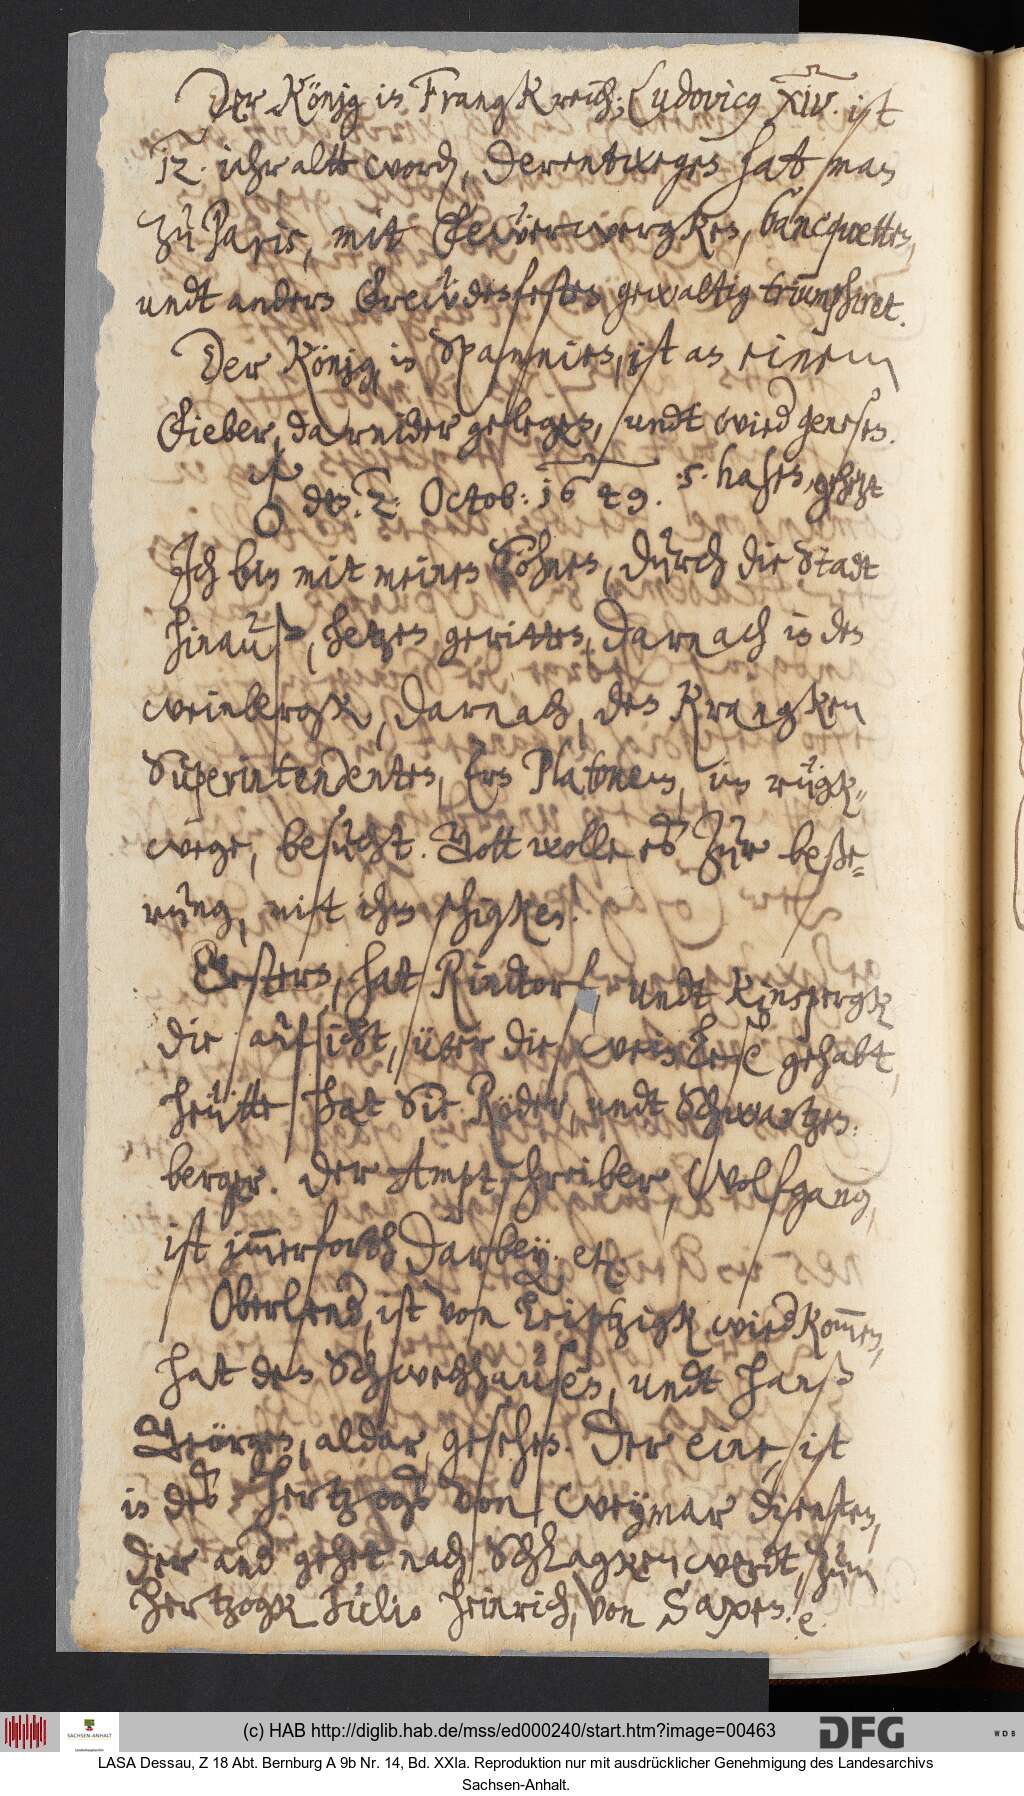 Der König in Frangkreich, Ludovicus XIV. ist
12. iahr altt worden, derentwegen hat man
zu Paris, mit Fewerwergken, bancquetten,
undt andern Frewdenfesten gewaltig triumphiret.
Der König in Spannien, ist an einem
Fieber, darnider gelegen, undt wied genesen.
♂ den 2. Octob: 1649. 5. hasen gehezt
Ich bin mit meinen Söhnen, durch die Stadt
hinauß, hetzen geritten, darnach in den
weinbergk, darnach, den Krangken
Superintendenten, Ern Platonem, im rügk-
wege, besucht. Gott wolle es zur beße-
rung, mit ihm schigken.
Gestern, hat Rindtorf undt Kinspergk
die aufsicht, über die weinlese gehabt,
heütte hat sie Röder, undt Schwartzen-
berger. Der Amptschreiber, Wolfgang,
ist immerforth darbey. etc.
Oberlend, ist von Leiptzigk wied kommen,
hat den Schwechhausen, undt Hanß
Geörgen, aldar, gesehen. Der eine, ist
in des Hertzogs von Weymar diensten,
der and gehet nach Schlagkenwerdt, zum
Hertzogk Julio Heinrich, von Saxen. e.
(c) HAB http://diglib.hab.de/mss/ed000240/start.htm?image=00463
SACHSEN-ANHALT
DFG
WDB
LASA Dessau, Z 18 Abt. Bernburg A 9b Nr. 14, Bd. XXIa. Reproduktion nur mit ausdrücklicher Genehmigung des Landesarchivs
Sachsen-Anhalt.